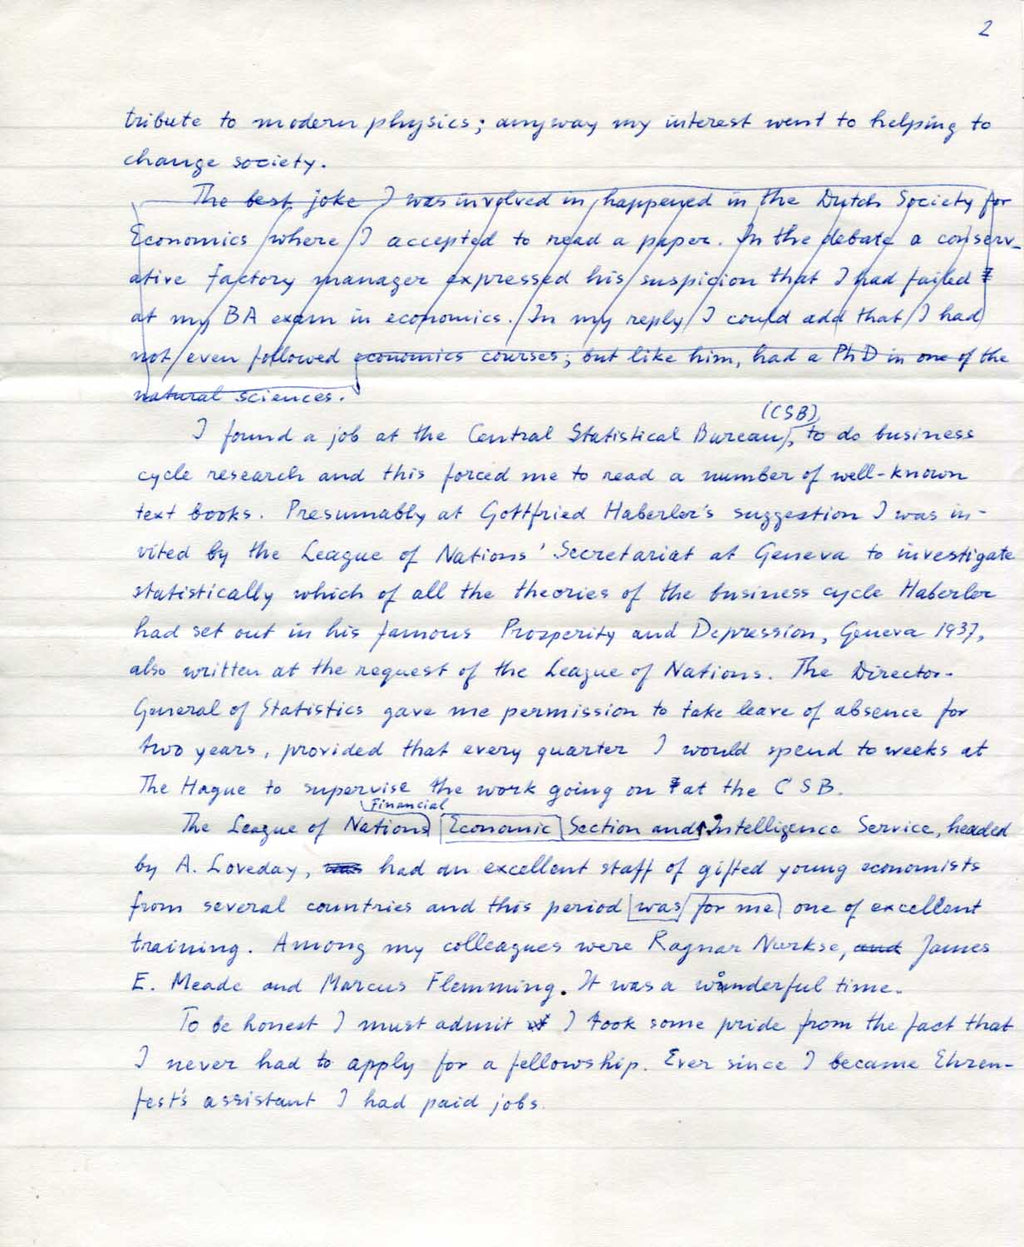 2
tribute to modern physics; anyway my interest went to helping to
change society.
The best joke I was involved in happened in the Dutch Society for
Economics where I accepted to read a paper. In the debate a conserv-
ative factory manager expressed his suspicion that I had failed
at my BA exam in economics. In my reply I could add that I had
not even followed economics courses; but like him, had a PhD in one of the
natural sciences.
(CSB)
I found a job at the Central Statistical Bureau, to do business
cycle research and this forced me to read a number of well-known
text books. Presumably at Gottfried Haberler's suggestion I was in-
vited by the League of Nations' Secretariat at Geneva to investigate
statistically which of all the theories of the business cycle Haberler
had set out in his famous Prosperity and Depression, Geneva 1937,
also written at the request of the League of Nations. The Director-
General of Statistics gave me permission to take leave of absence for
two years, provided that every quarter I would spend to weeks at
The Hague to supervise the work going on at the CSB.
Financial
The League of Nations Economic Section and Intelligence Service, headed
by A. Loveday, was had an excellent staff of gifted young economists
from several countries and this period was for me one of excellent
training. Among my colleagues were Ragnar Nurkse, and James
E. Meade and Marcus Flemming. It was a wonderful time.
To be honest I must admit I took some pride from the fact that
I never had to apply for a fellowship. Ever since I became Ehren-
fest's assistant I had paid jobs.